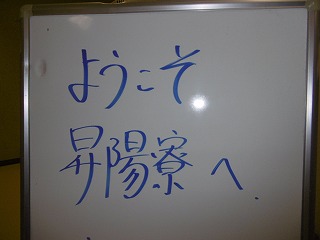 ようこそ
昇陽寮へ